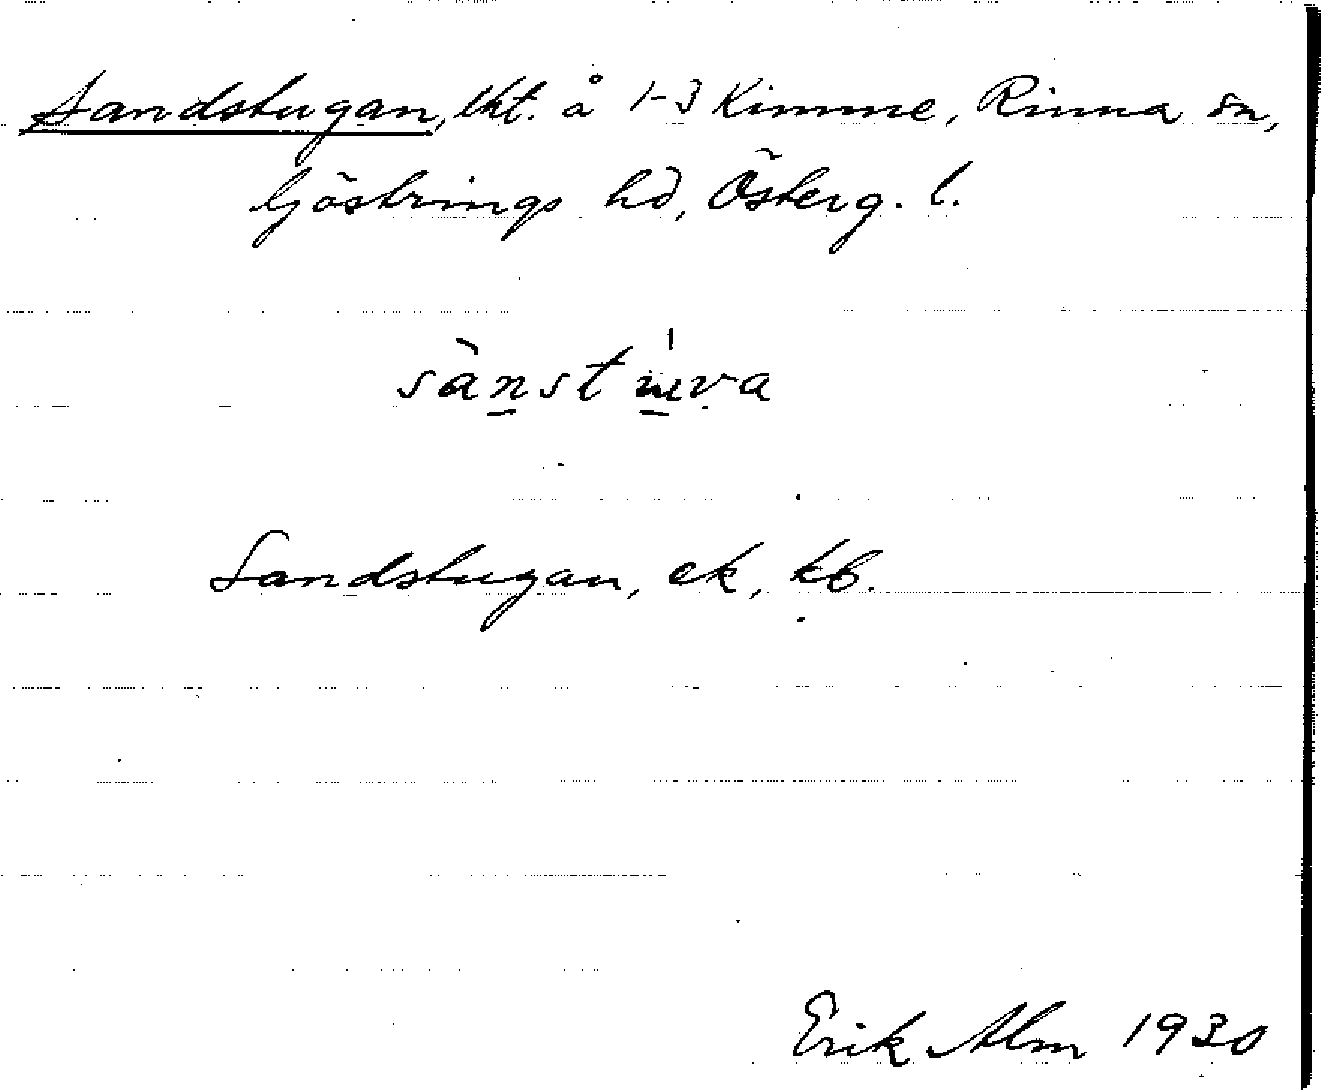 Sandstugan, lht. å 1-3 Kimme, Rinna sn,
Göstrings hd, Österg. l.
sànstuva
Sandstugan, ek, kb.
Erik Alm 1930